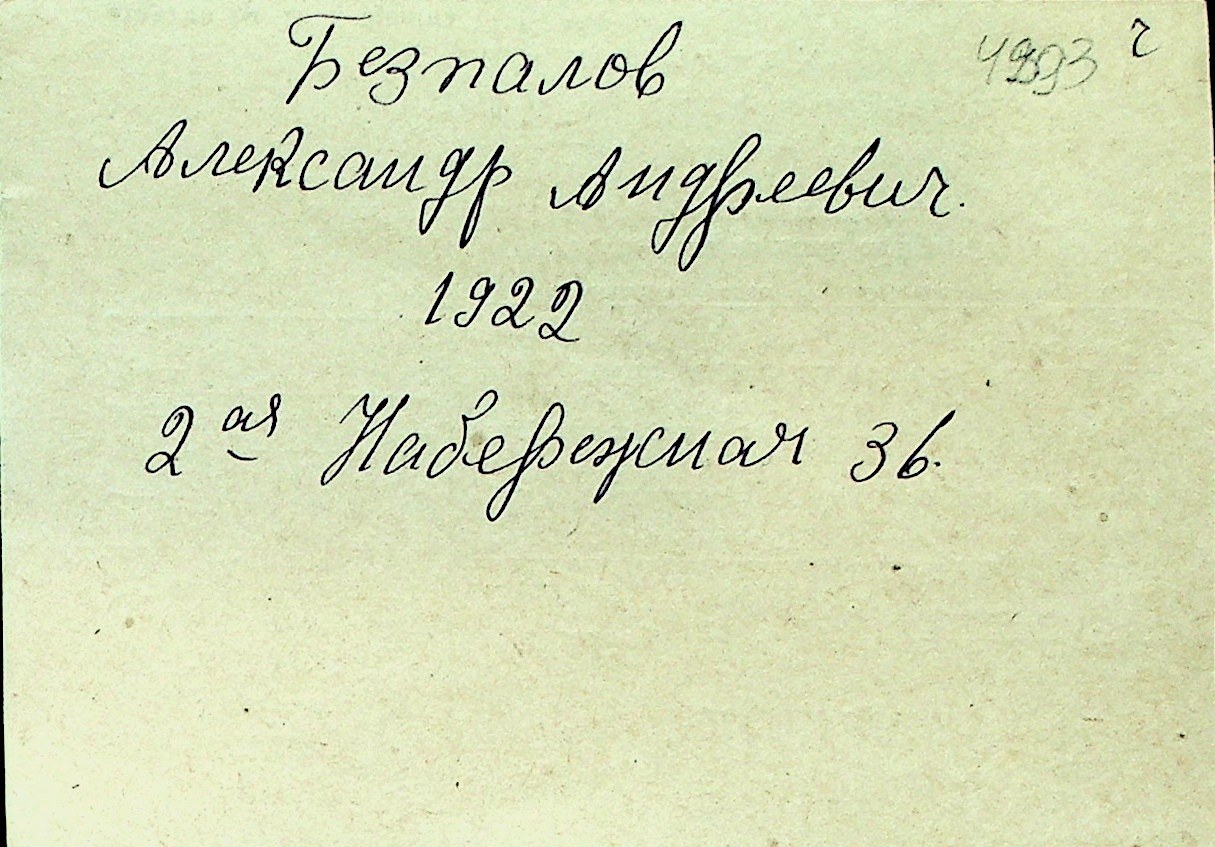 Безпалов
Александр Андреевич.
1922
2ая Набережная 36.